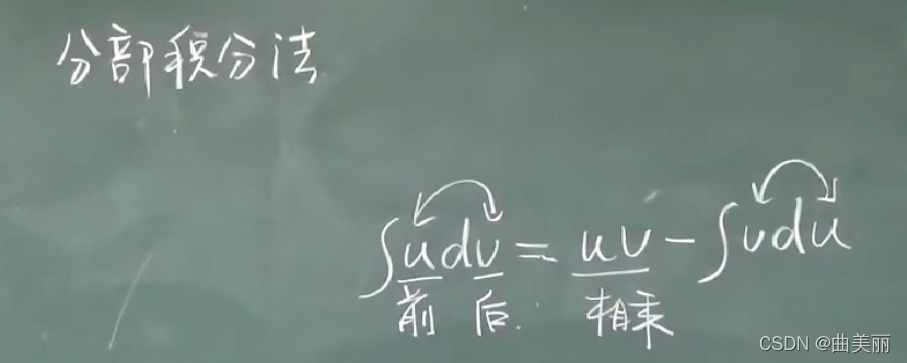 分部积分法
∫udv = uv - ∫vdu
前 后. 相乘
CSDN @曲美丽